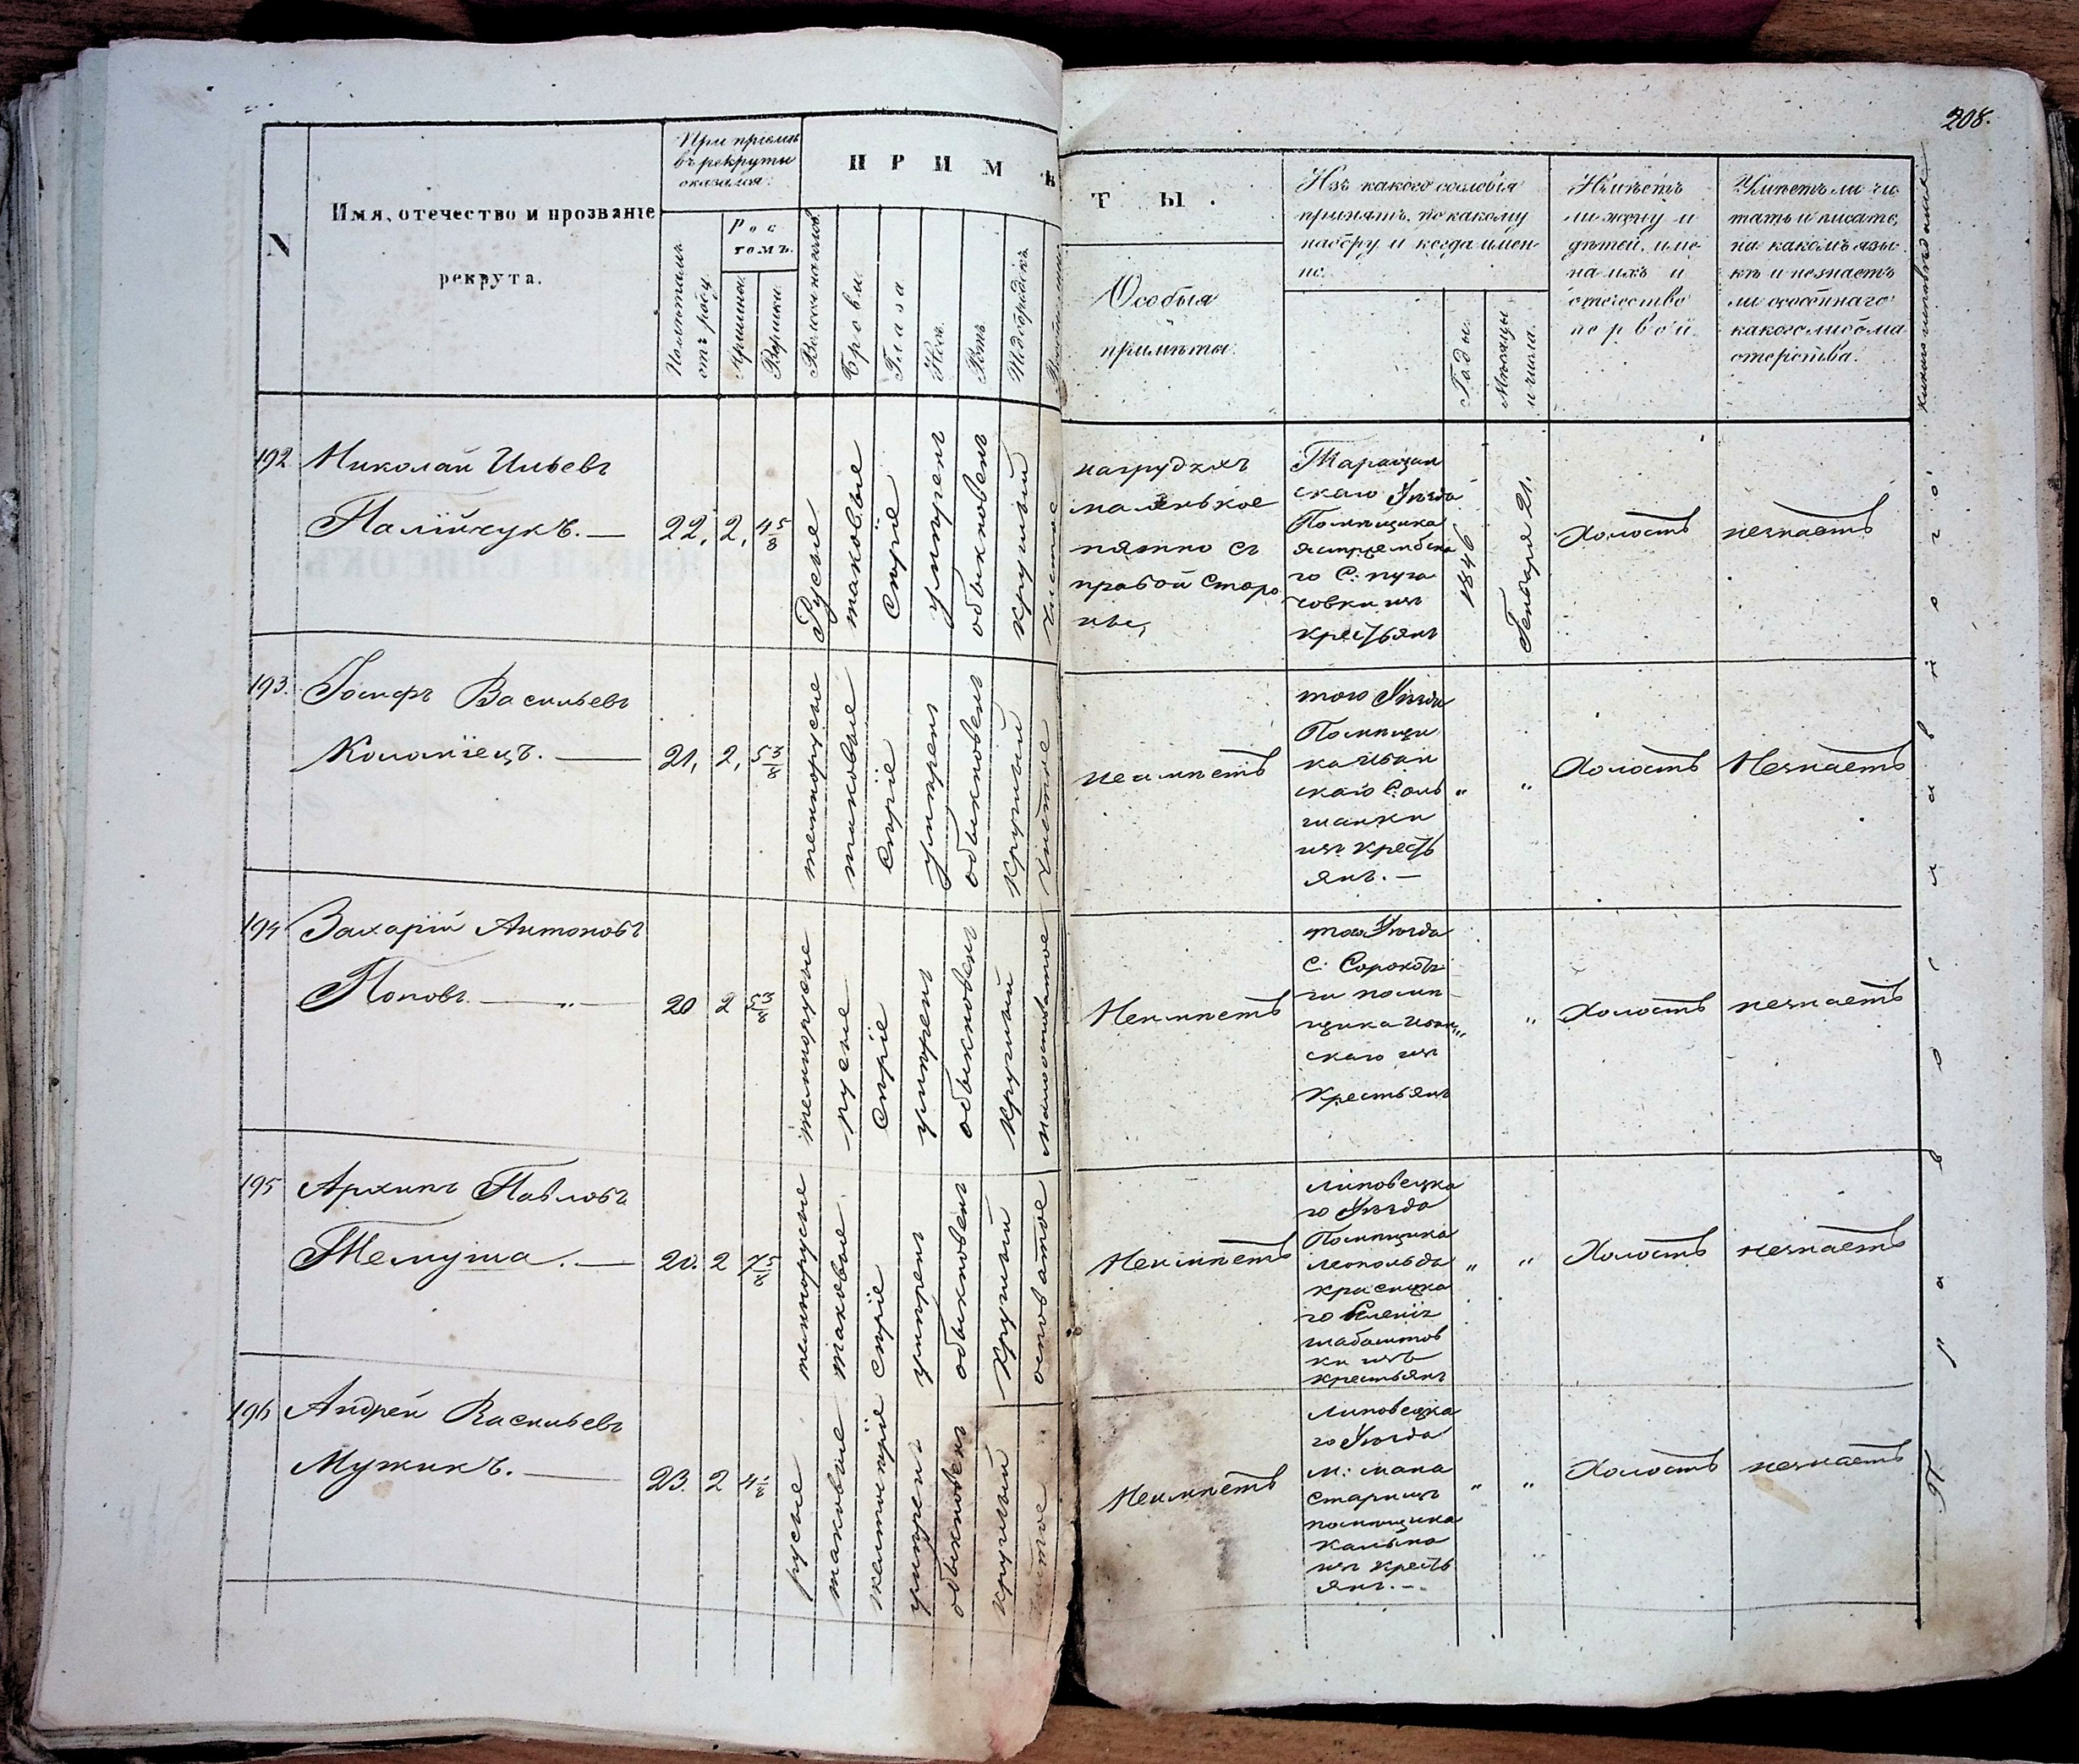 208.
N
Имя, отечество и прозвание
рекрута.
При приеме
въ рекруты
оказался:
Полѣтамъ
отъ роду.
Ростомъ.
Аршины.
Вершки.
ПРИМѢТЫ.
Волоса на головѣ
Брови.
Глаза
Носъ.
Ротъ.
Подбородокъ
Особыя
примѣты.
Изъ какого сословія
принятъ, по какому
набору и когда имен-
но.
Годы.
Мѣсяцы
и числа.
Имѣетъ
ли жену и
дѣтей, име
на ихъ и
отечество
первой.
Умѣетъ ли чи
тать и писать,
на какомъ язы
кѣ и незнаетъ
ли особеннаго
какого либо ма
стерства.
192
Николай Ильевъ
Палійчукъ. —
22,
2,
4 5/8
Русые
таковые
сѣріе
умѣренъ
обыкновенъ
круглый
чистое
нагрудяхъ
маленькое
пятно съ
правой сторо
нѣ,
Таращан
скаго Уѣзда
Помѣщика
го С: Пуга
човки изъ
крестьянъ
1846
Генваря 21.
Холостъ
незнаетъ
193.
Іосифъ Васильевъ
Коломіецъ. —
21,
2,
5 3/8
темнорусые
таковые
сѣріе
умѣренъ
обыкновенъ
круглый
чистое
неимѣетъ
того Уѣзда
Помѣщи
ка Иван
скаго С: Оль
шанки
изъ кресть
янъ. —
"
"
Холостъ
Незнаетъ
194
Захарій Антоновъ
Поповъ. — „ —
20
2
5 3/8
темнорусые
русые
сѣріе
умѣренъ
обыкновенъ
круглый
малоосповатое
Неимѣетъ
того Уѣзда
С: Сорокотя
ги помѣ
щика Иван
скаго изъ
Крестьянъ
"
"
Холостъ
незнаетъ
195
Архипъ Павловъ
20.
2
7 5/8
темнорусые
таковые
сѣріе
умѣренъ
обыкновенъ
круглый
осповатое
Неимѣетъ
Липовецка
го Уѣзда
Помѣщика
Леопольда
красицка
го
ки изъ
крестьянъ
"
"
Холостъ
незнаетъ
196
Андрей Васильевъ
Мужикъ. —
23.
2
русые
таковые
желтосѣріе
умѣренъ
обыкновенъ
круглый
чистое
Неимѣетъ
Липовецка
го Уѣзда
м: мона
стырищъ
помѣщика
изъ кресть
янъ. —
"
"
Холостъ
незнаетъ